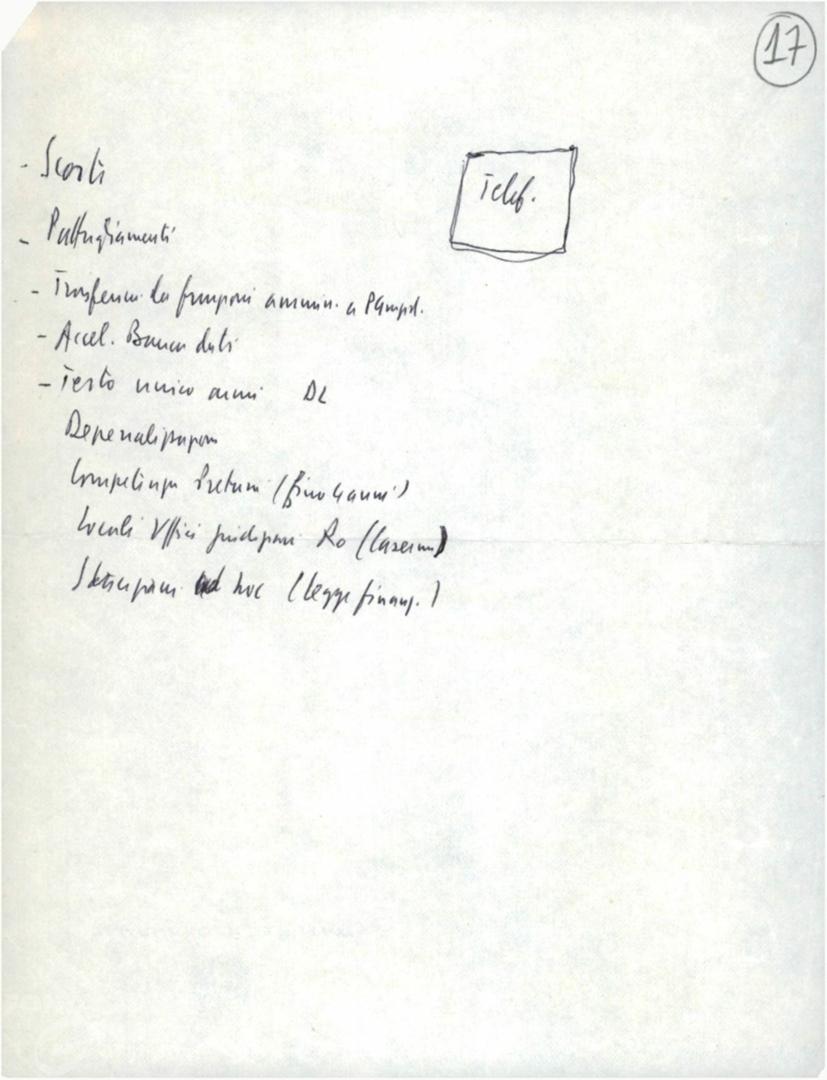 17
- Scorte
Telef.
- Pattugliamenti
- Trasferim. funzioni ammin. a
- Accel. Banca dati
- Testo unico armi DL
Depenalizzazioni
Competenza Pretura (fino 4 anni)
Locali Uffici giudiziari Ro (Caserme)
ad hoc (legge finanz.)